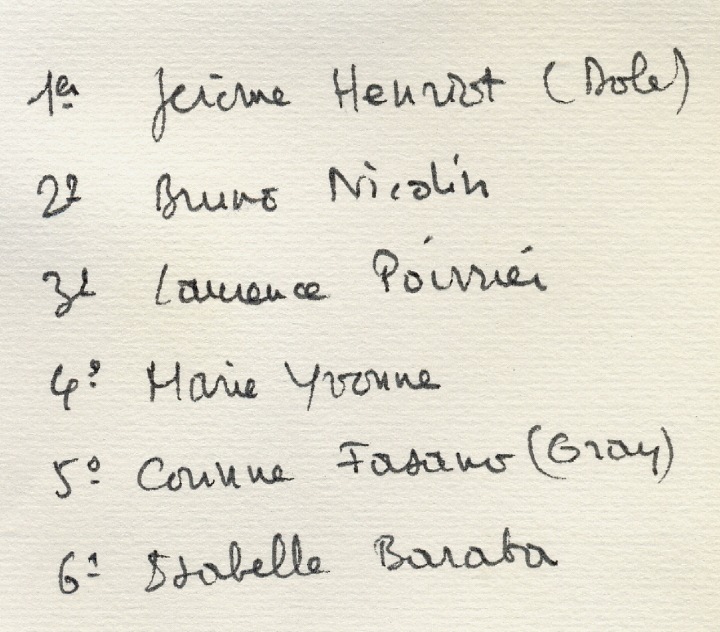 1er Jérôme Henriot (Dole)
2e Bruno Nicolin
3e Laurence Poirrier
4e Marie Yvonne
5e Corinne Fasano (Gray)
6e Isabelle Baraba